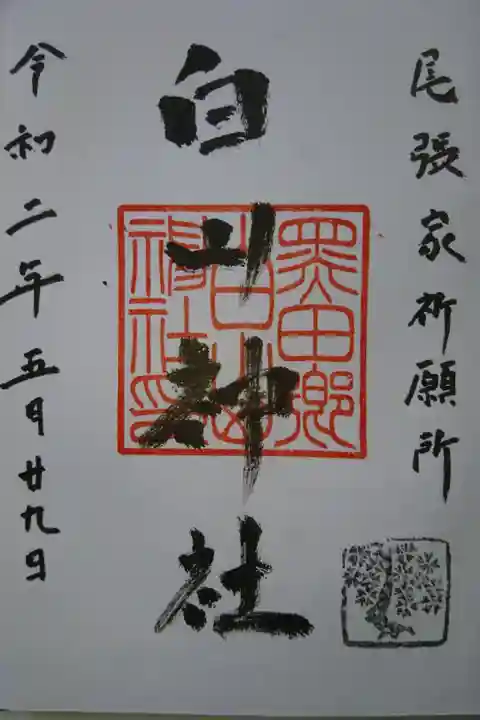 尾張家祈願所
白山神社
黒田郷
白山神
社印
令和二年五月廿九日